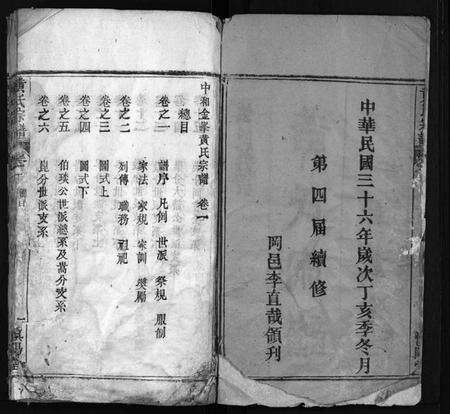 中華民國三十六年歲次丁亥季冬月
第四届續修
岡邑李直哉領刊
中和金峯黃氏宗譜 卷一
總目
卷之一 譜序 凡例 世派 祭規 服制
家法 家規 家訓 獎勵
卷之二 列傳 職務 祖祀
卷之三 圖式上
卷之四 圖式下
卷之五 伯琰公世派總系及嵩分支系
卷之六 崑分世派支系
黃氏宗譜
總目
一